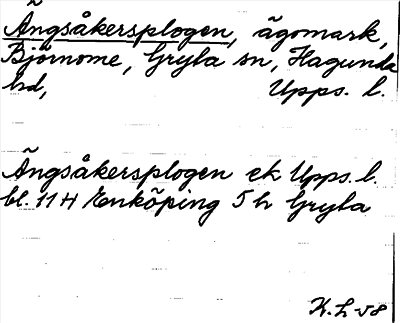 Ängsåkersplogen, ägomark,
Björnome, Gryta sn, Hagunda
hd, Upps. l.
Ängsåkersplogen ek Upps. l.
bl. 11 H Enköping 5 h Gryta
K. L -58